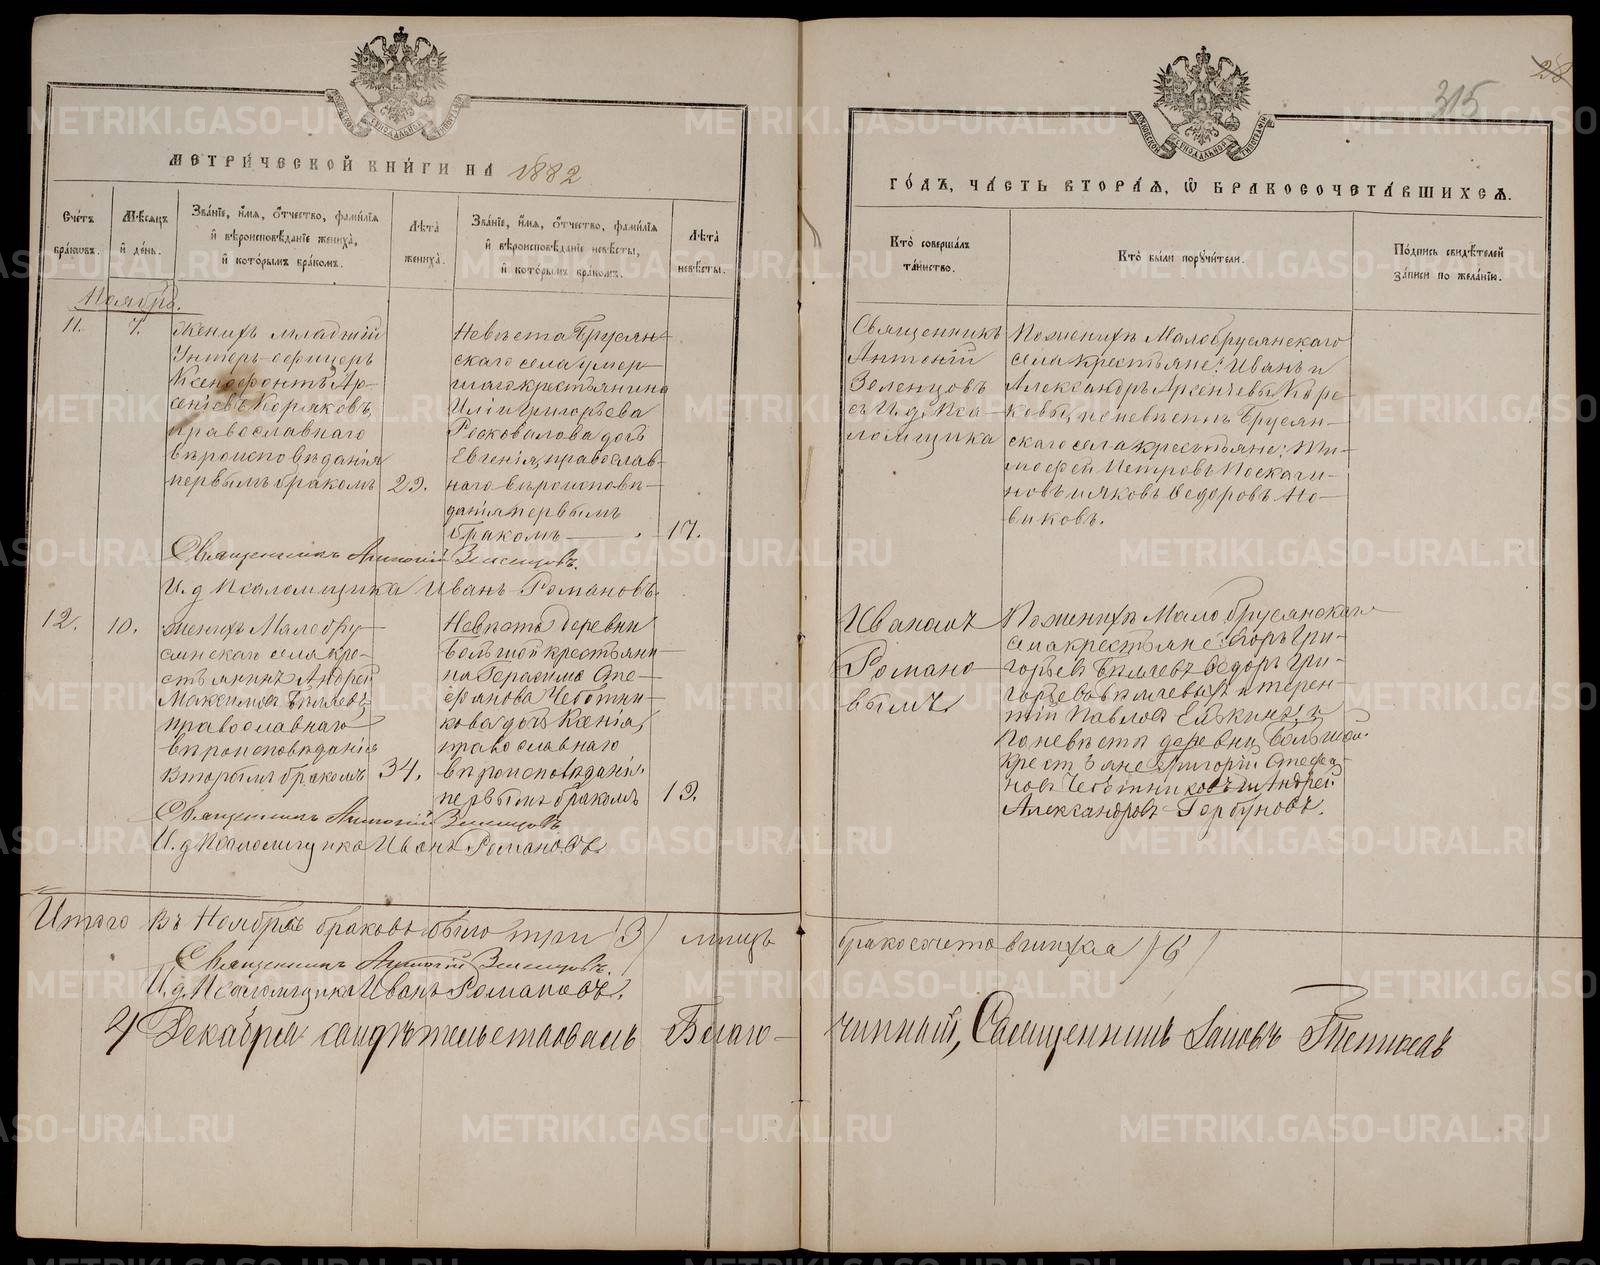 МЕТРИ́ЧЕСКОЙ КНИ́ГИ НА 1882
Счётъ бра́ковъ.
Мѣ́сяцъ и҆ де́нь.
Зва́нїе, и҆́мя, ѻ҆́тчество, фами́лїя
и҆ вѣроисповѣ́данїе жениха̀,
и҆ кото́рымъ бра́комъ.
Лѣ́та жениха̀.
Зва́нїе, и҆́мя, ѻ҆́тчество, фами́лїя
и҆ вѣроисповѣ́данїе невѣ́сты,
и҆ кото́рымъ бра́комъ.
Лѣ́та невѣ́сты.
Ноябрь.
11.
7.
Женихъ младшій
Унтеръ-офицеръ
Ксенофонтъ Ар-
сеніевъ Коряковъ,
православнаго
вѣроисповѣданія
первымъ бракомъ
29.
Невѣста Брусян-
скаго села умер-
шаго крестьянина
Иліи Григорьева
дочь
Евгенія, православ-
наго вѣроисповѣ-
данія первымъ
бракомъ
17.
Священникъ Антоній Зеленцовъ.
И. д. Псаломщика Иванъ Романовъ.
12.
10.
Женихъ Малобру-
сянскаго села кре-
стьянинъ Андрей
Максимовъ Бѣляевъ,
православнаго
вѣроисповѣданія
вторымъ бракомъ
34.
Невѣста деревни
Большой крестьяни-
на Герасима Сте-
фанова Чебтни-
кова дочь Ксенія,
православнаго
вѣроисповѣданія
первымъ бракомъ
19.
Священникъ Антоній Зеленцовъ
И. д. Псаломщика Иванъ Романовъ
Итого въ Ноябрѣ браковъ было три (3) лицъ
Священникъ Антоній Зеленцовъ.
И. д. Псаломщика Иванъ Романовъ.
4 Декабря свидѣтельствовалъ Благо-
315
28
ГО́ДЪ, ЧА́СТЬ ВТОРА́Я, Ѡ҆ БРАКОСОЧЕТА́ВШИХСЯ.
Кто̀ соверша́лъ
та́инство.
Кто̀ бы́ли поручи́тели.
По́дпись свидѣ́телей
за́писи по жела́нїю.
Священникъ
Антоній
Зеленцовъ
съ И. д. Пса-
ломщика
По женихѣ Малобрусянскаго
села крестьяне: Иванъ и
Александръ Арсеніевы Коря-
ковы, по невѣстѣ Брусян-
скаго села крестьяне: Ти-
мофей Петровъ
и Яковъ Федоровъ Но-
виковъ.
Иваномъ
Романо-
вымъ
По женихѣ Малобрусянскаго
села крестьяне: Егоръ Гри-
горьевъ Бѣляевъ Федоръ Гри-
горьевъ Бѣляевы и Терен-
тій Павловъ Елькинъ, и
по невѣстѣ деревни Большой
крестьяне: Григорій Стефа-
новъ и Андрей
Александровъ Горбуновъ.
бракосочетавшихся (6)
чинный, Священникъ
МОСКОВСКОЙ СѴНОДАЛЬНОЙ ТИПОГРАФІИ
METRIKI.GASO-URAL.RU